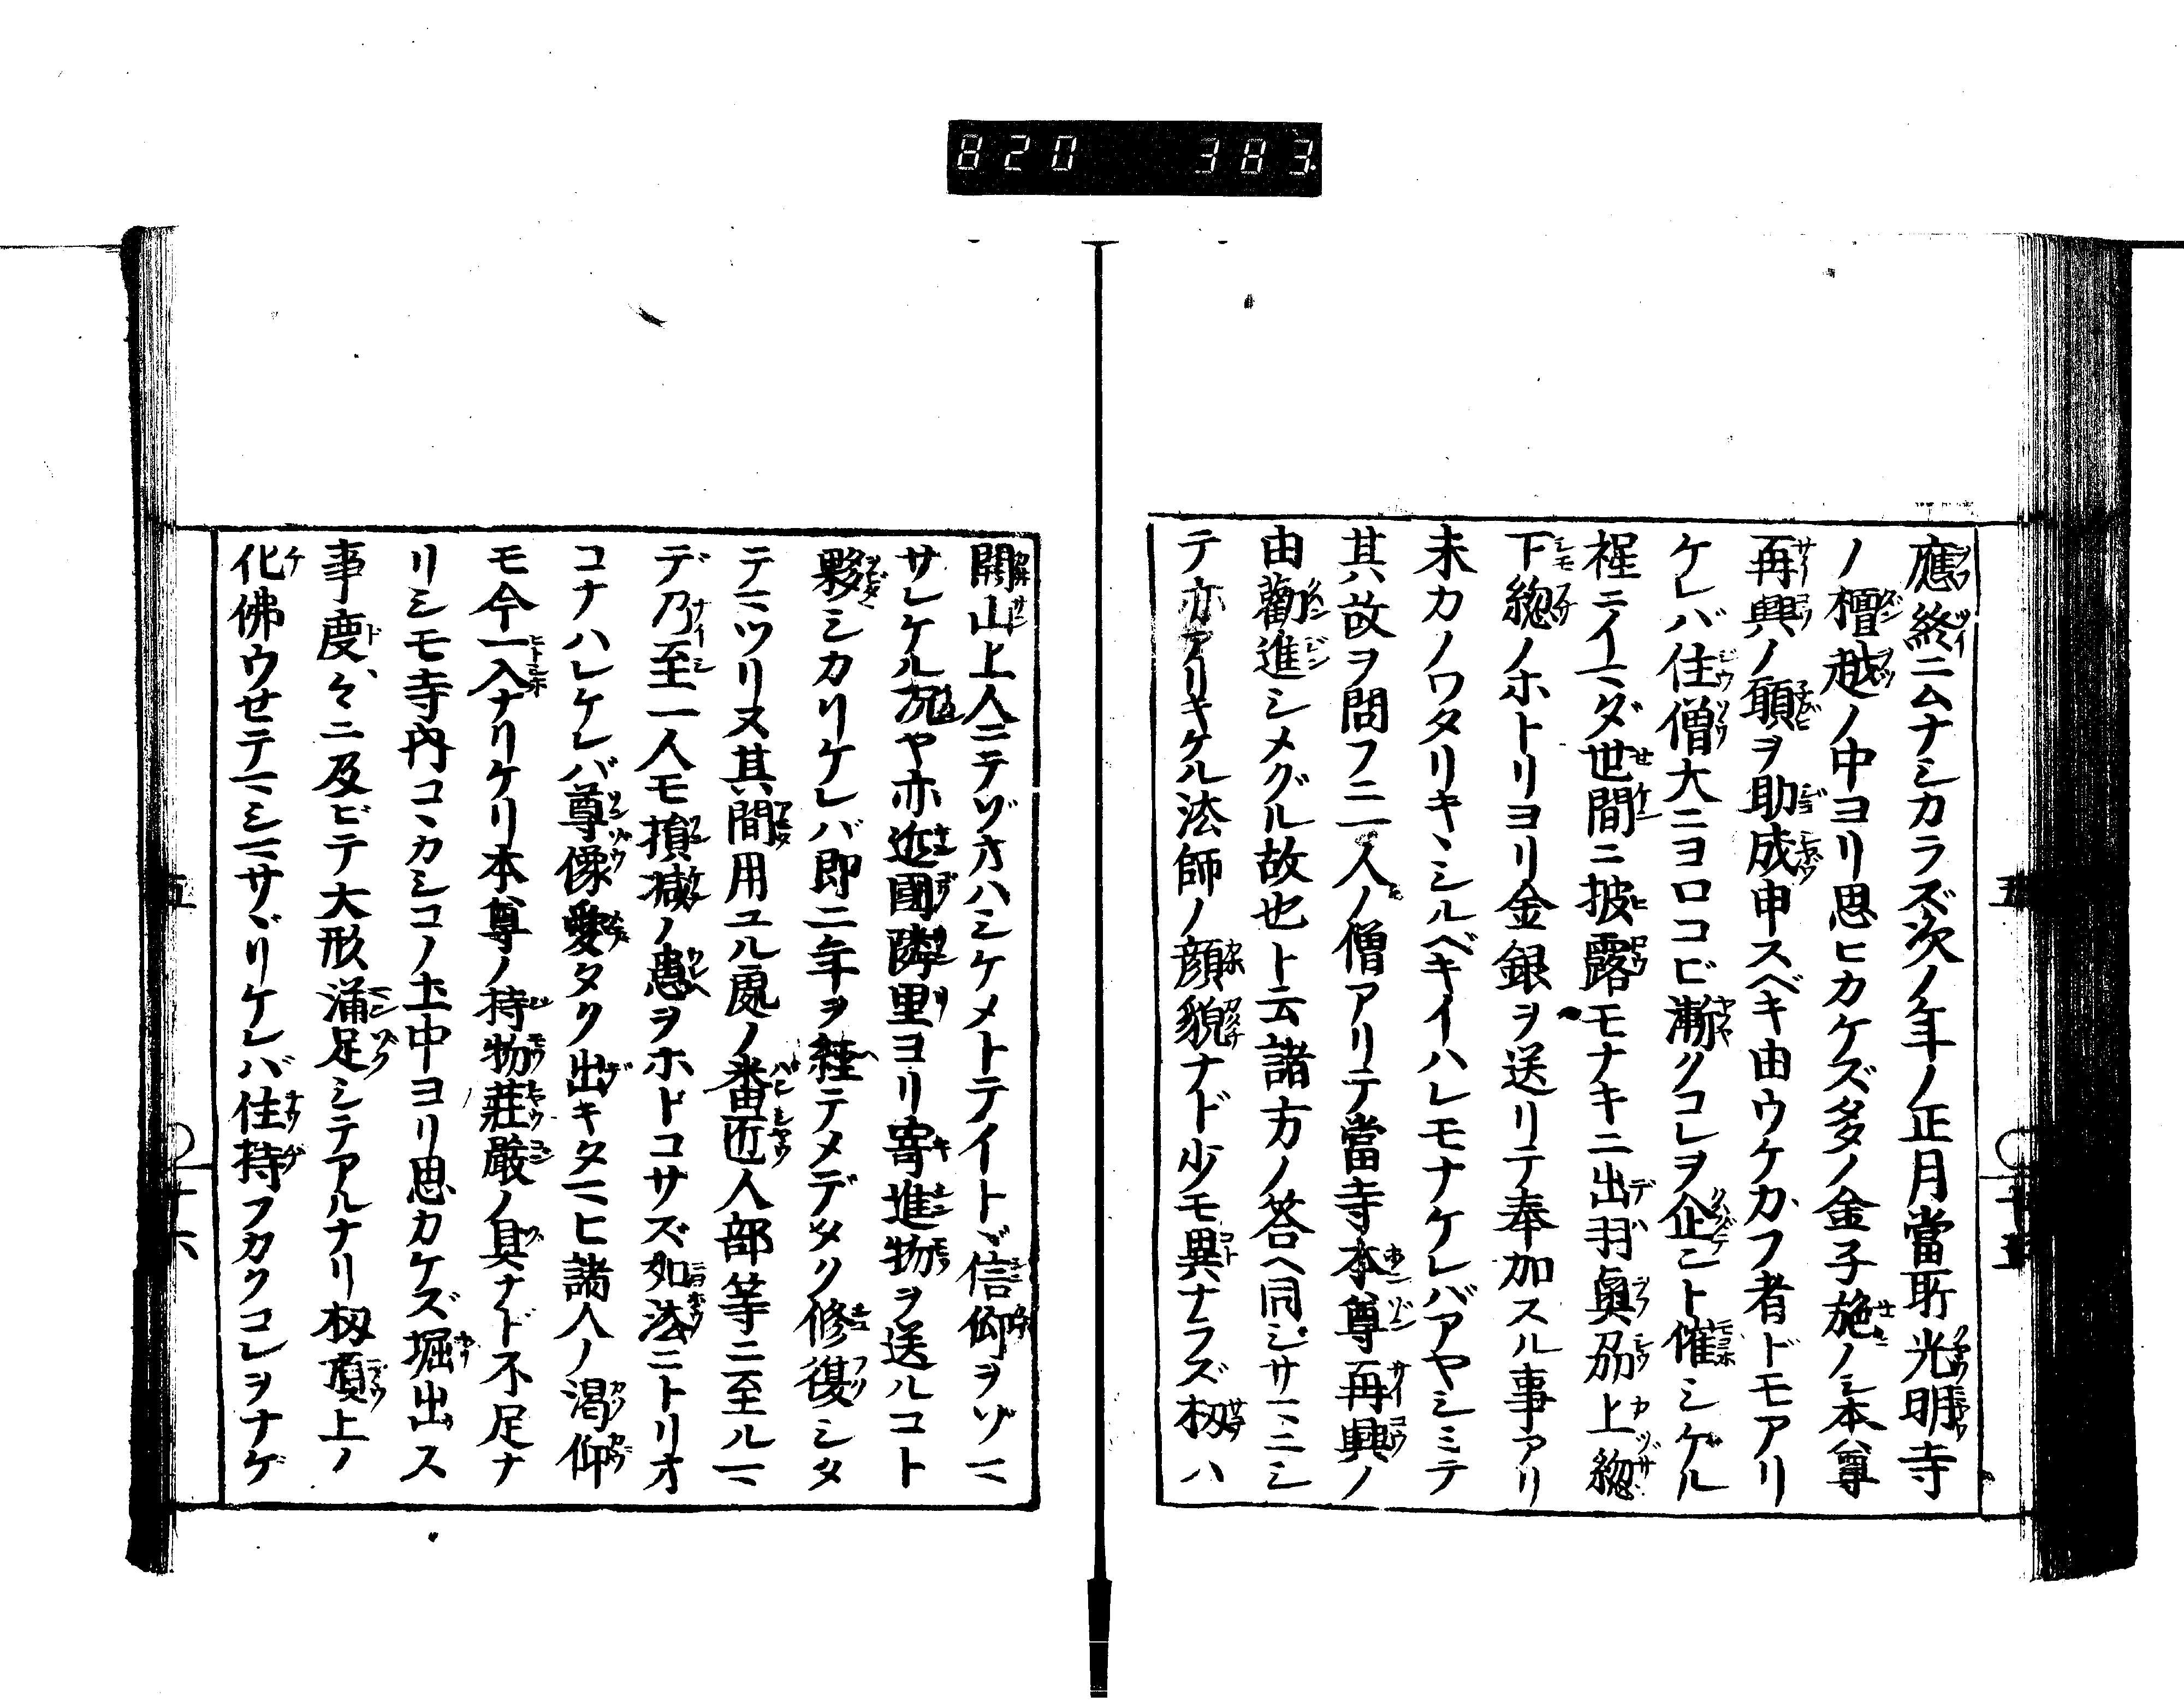 820 383
應終ニムナシカラズ次ノ年ノ正月當所光明寺
ノ檀越ノ中ヨリ思ヒカケズ多ノ金子施ノシ本尊
再興ノ願ヲ助成申スベキ由ウケカフ者ドモアリ
ケレバ住僧大ニヨロコビ漸クコレヲ企ント催シケル
程ニイマダ世間ニ披露モナキニ出羽奥刕上総
下総ノホトリヨリ金銀ヲ送リテ奉加スル事アリ
未カノワタリキヽシルベキイハレモナケレバアヤシミテ
其故ヲ問フニ一人ノ僧アリテ當寺本尊再興ノ
由勸進シメグル故也ト云諸方ノ答ヘ同ジサマニシ
テ亦アリキケル法師ノ顔貌ナド少モ異ナラズ扨ハ
五
十五
開山上人ニテゾオハシケメトテイトヾ信仰ヲゾマ
サレケル况ヤ亦近國隣里ヨリ寄進物ヲ送ルコト
夥シカリケレバ即二年ヲ経テメデタク修復シタ
テマツリヌ其間用ユル處ノ番匠人部等ニ至ルマ
デ乃至一人モ損減ノ患ヲホドコサズ如法ニトリオ
コナハレケレバ尊像愛タク出キタマヒ諸人ノ渇仰
モ今一入ナリケリ本尊ノ持物荘厳ノ具ナド不足ナ
リシモ寺内コヽカシコノ土中ヨリ思カケズ堀出ス
事度々ニ及ビテ大形満足シテアルナリ扨頂上ノ
化佛ウせテマシマサヾリケレバ住持フカクコレヲナゲ
五
十六